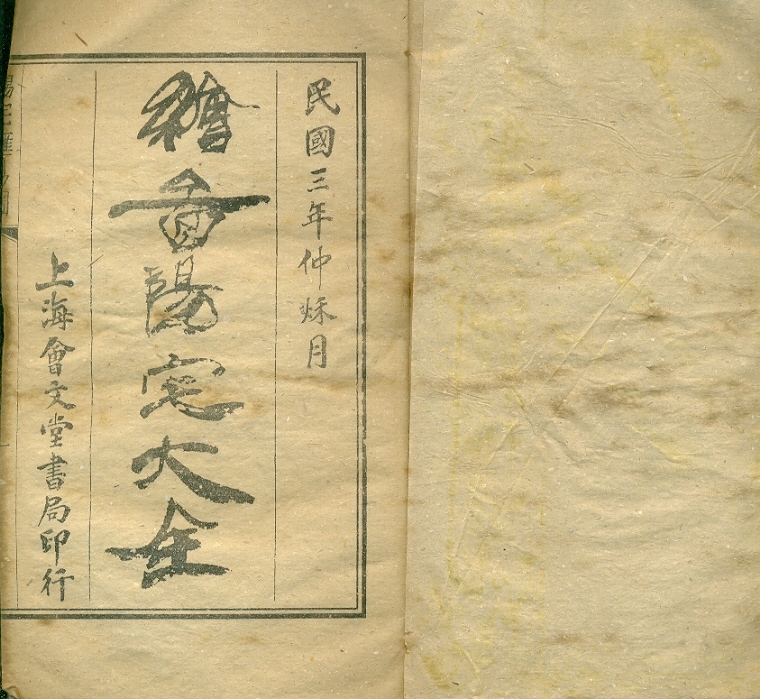 民國三年仲秌月
繪啚陽宅大全
上海會文堂書局印行